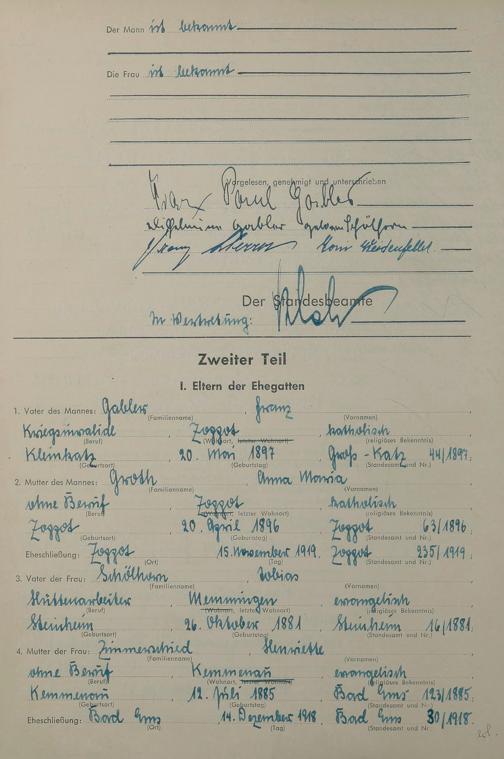 Der Mann ist bekannt
Die Frau ist bekannt
Vorgelesen, genehmigt und unterschrieben
Franz Paul Gabler
Wilhelmine Gabler geborene Schölhorn
Franz
Der Standesbeamte
In Vertretung:
Zweiter Teil
I. Eltern der Ehegatten
1. Vater des Mannes: Gabler, Franz
(Familienname) (Vornamen)
Kriegsinvalide, Zoppot, katholisch
(Beruf) (Wohnort, letzter Wohnort) (religiöses Bekenntnis)
Kleinkatz, 20. Mai 1897, Groß-Katz 44/1897.
(Geburtsort) (Geburtstag) (Standesamt und Nr.)
2. Mutter des Mannes: Groth, Anna Maria
(Familienname) (Vornamen)
ohne Beruf, Zoppot, katholisch
(Beruf) (Wohnort, letzter Wohnort) (religiöses Bekenntnis)
Zoppot, 20. April 1896, Zoppot 63/1896
(Geburtsort) (Geburtstag) (Standesamt und Nr.)
Eheschließung: Zoppot, 15. November 1919. Zoppot 235/1919.
(Ort) (Tag) (Standesamt und Nr.)
3. Vater der Frau: Schölhorn, Tobias
(Familienname) (Vornamen)
Hüttenarbeiter, Memmingen, evangelisch
(Beruf) (Wohnort, letzter Wohnort) (religiöses Bekenntnis)
Steinheim, 26. Oktober 1881, Steinheim 16/1881.
(Geburtsort) (Geburtstag) (Standesamt und Nr.)
4. Mutter der Frau: Zimmerschied, Henriette
(Familienname) (Vornamen)
ohne Beruf, Kemmenau, evangelisch
(Beruf) (Wohnort, letzter Wohnort) (religiöses Bekenntnis)
Kemmenau, 12. Juli 1885, Bad Ems 123/1885.
(Geburtsort) (Geburtstag) (Standesamt und Nr.)
Eheschließung: Bad Ems, 14. Dezember 1918, Bad Ems 30/1918.
(Ort) (Tag) (Standesamt und Nr.)